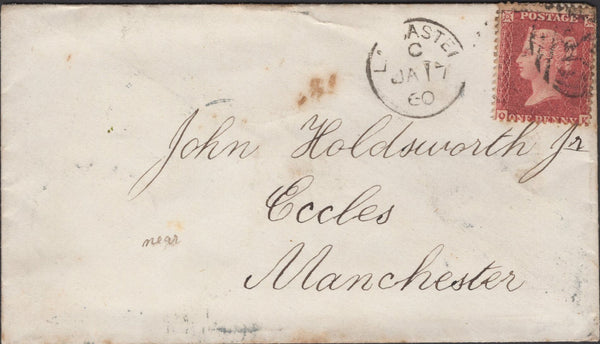 LANCASTER
C
JA 17
60
POSTAGE
ONE PENNY
John Holdsworth Jr
Eccles
near
Manchester